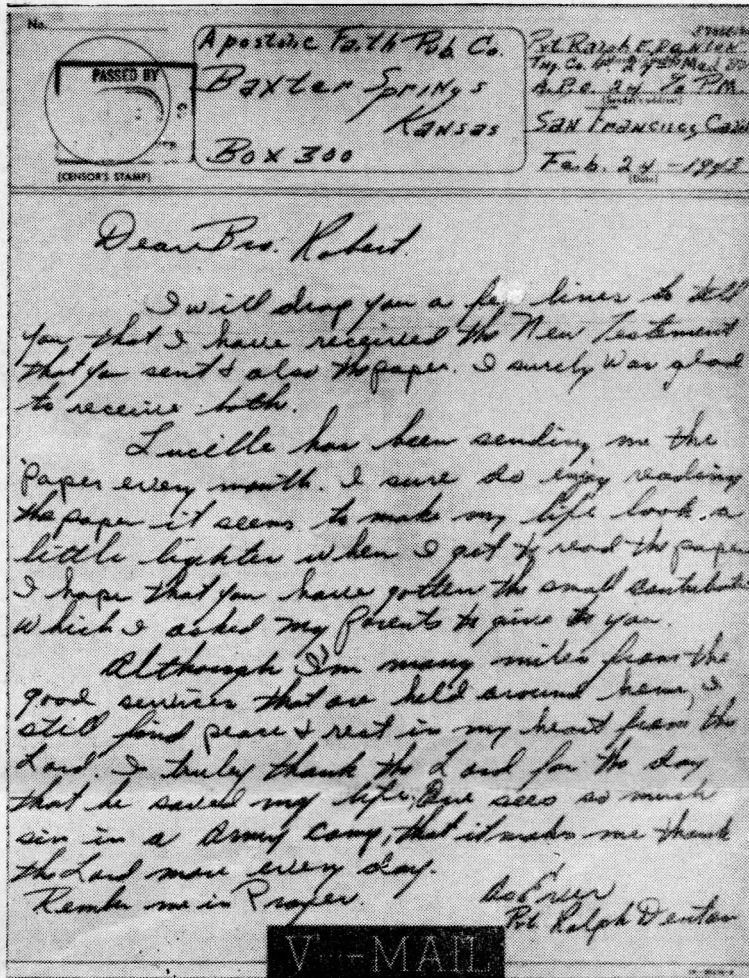 No.
PASSED BY
(CENSOR'S STAMP)
Apostolic Faith Pub Co.
Baxter Springs
Kansas
Box 300
Pvt Ralph E. Denton
A.P.O. 24 % P.M.
(Sender's address)
San Francisco Calif
Feb. 24 - 1943
(Date)
Dear Bro. Robert.
I will drop you a few lines to tell
you that I have received the New Testament
that you sent & also the paper. I surely was glad
to receive both.
Lucille has been sending me the
paper every month. I sure do enjoy reading
the paper it seems to make my life look a
little lighter when I get to read the paper
I hope that you have gotten the small contribution
which I asked my Parents to give to you.
Although I'm many miles from the
good services that are held around home, I
still find peace & rest in my heart from the
Lord. I truly thank the Lord for the day
that he saved my life, One sees so much
sin in a Army camp, that it makes me thank
the Lord more every day.
Rember me in Prayer.
As Ever
Pvt. Ralph Denton
V···—MAIL